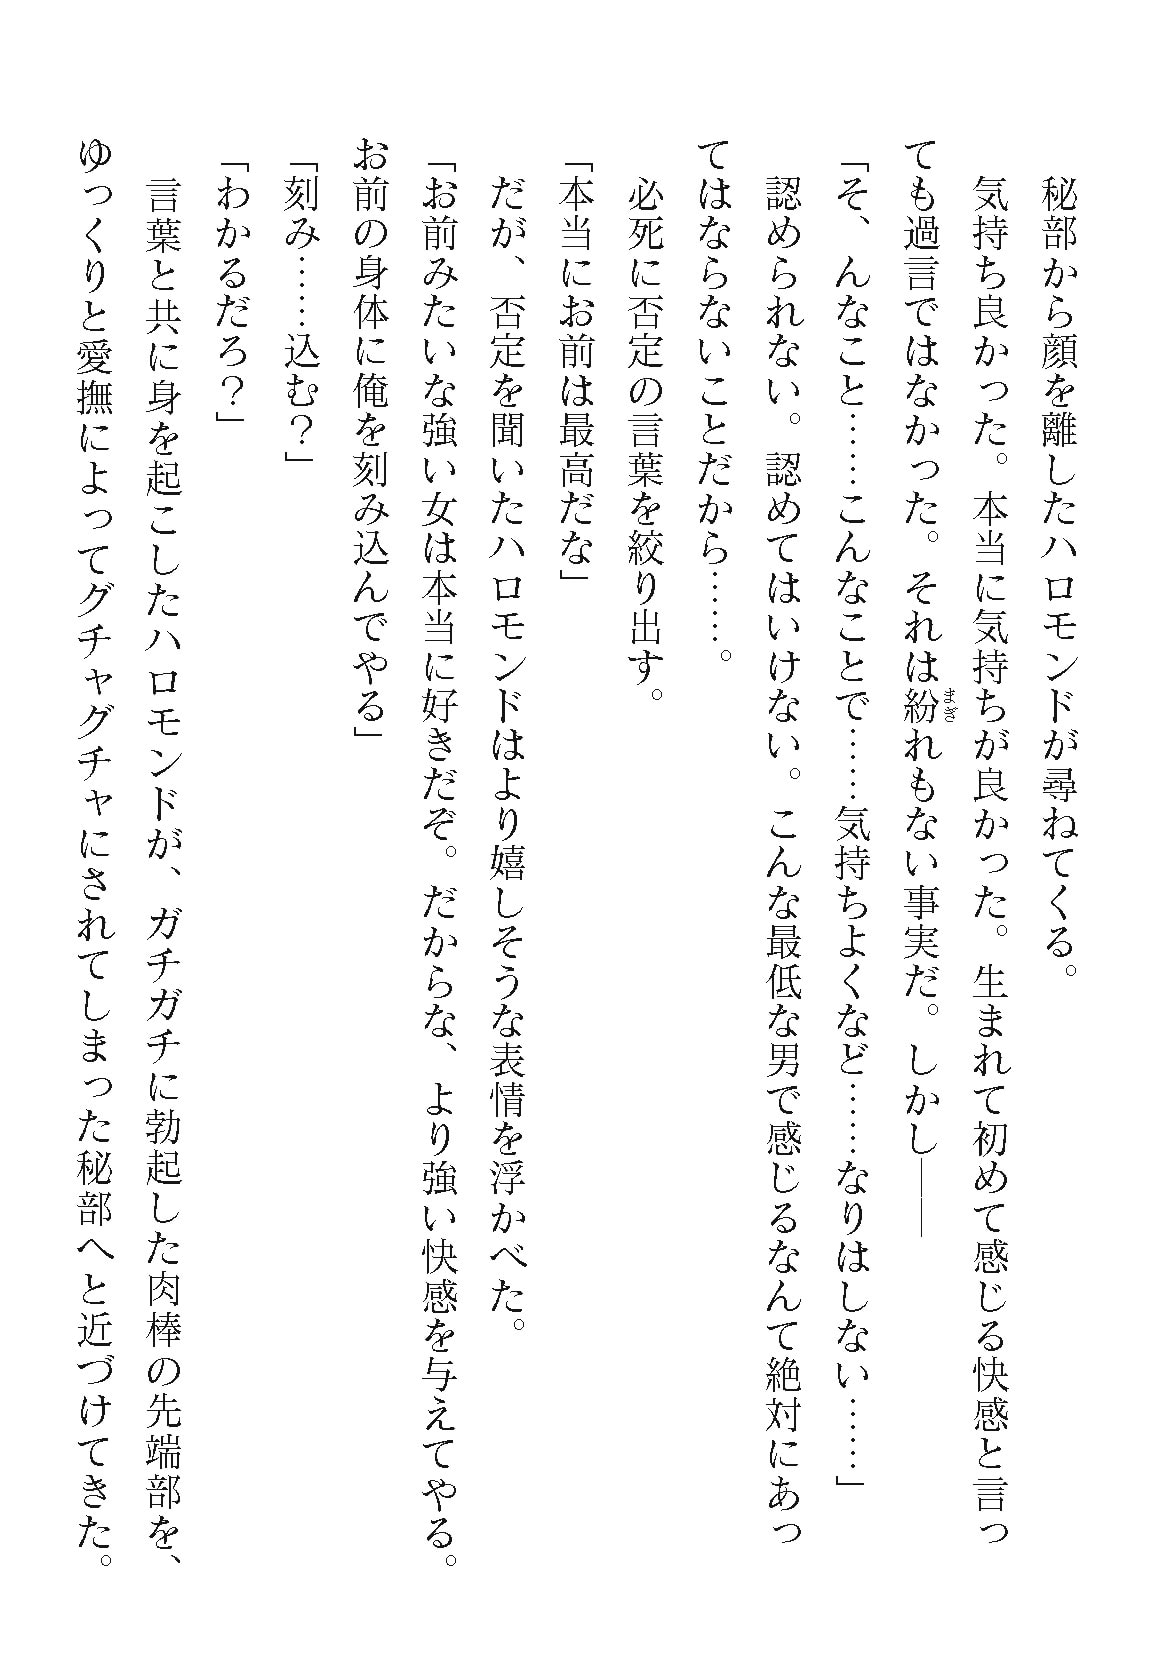 秘部から顔を離したハロモンドが尋ねてくる。
気持ち良かった。本当に気持ちが良かった。生まれて初めて感じる快感と言っ
ても過言ではなかった。それは紛まぎれもない事実だ。しかし――
「そ、んなこと……こんなことで……気持ちよくなど……なりはしない……」
認められない。認めてはいけない。こんな最低な男で感じるなんて絶対にあっ
てはならないことだから……。
必死に否定の言葉を絞り出す。
「本当にお前は最高だな」
だが、否定を聞いたハロモンドはより嬉しそうな表情を浮かべた。
「お前みたいな強い女は本当に好きだぞ。だからな、より強い快感を与えてやる。
お前の身体に俺を刻み込んでやる」
「刻み……込む？」
「わかるだろ？」
言葉と共に身を起こしたハロモンドが、ガチガチに勃起した肉棒の先端部を、
ゆっくりと愛撫によってグチャグチャにされてしまった秘部へと近づけてきた。